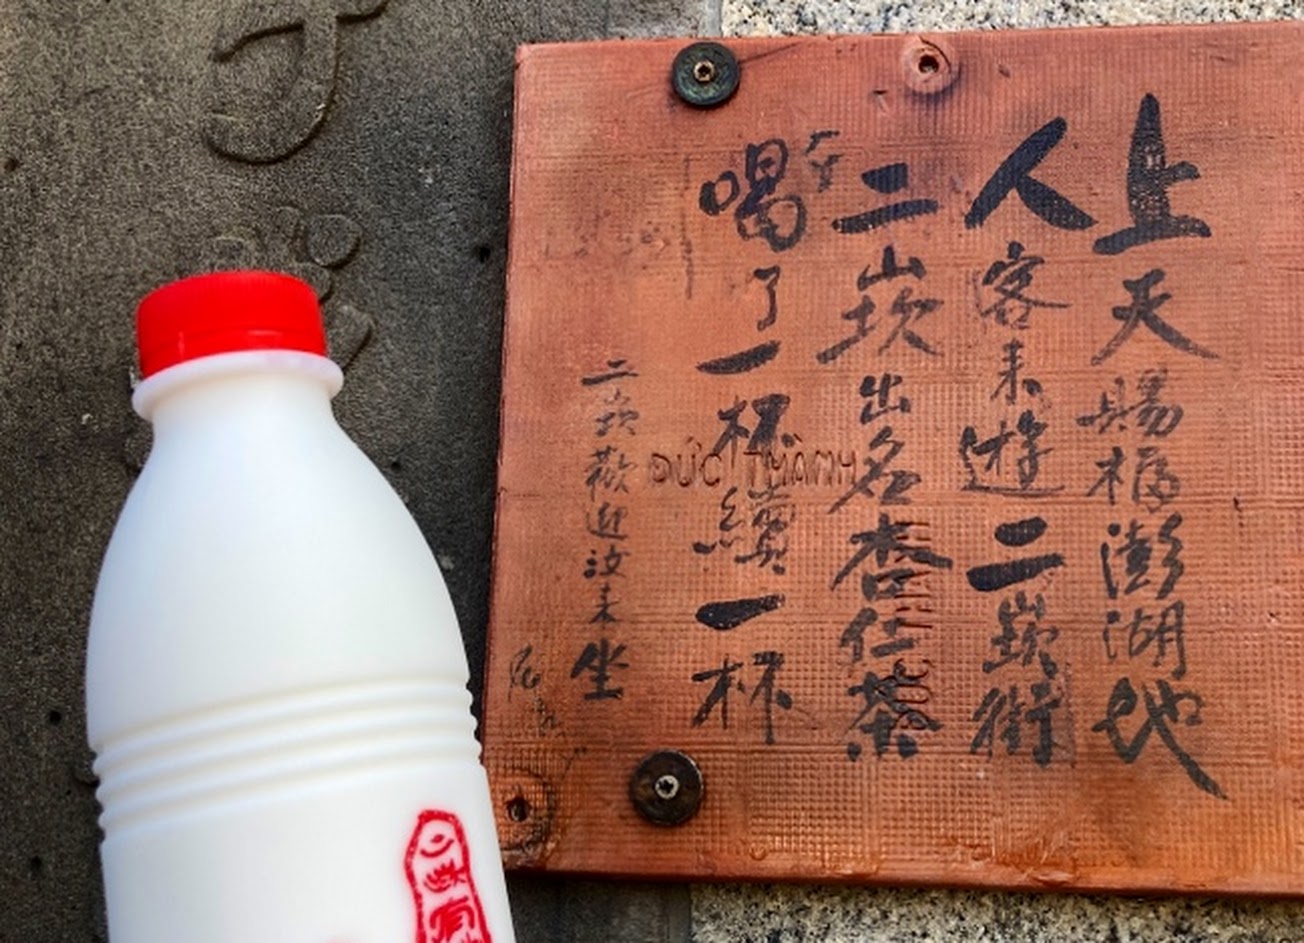 上天賜福澎湖地
人客來遊二崁街
二崁出名杏仁茶
喝了一杯續一杯
二崁歡迎汝來坐
ĐỨC THÀNH
二崁